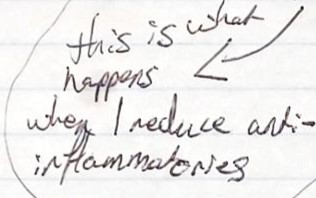 this is what
happens
when I reduce anti-
inflammatories